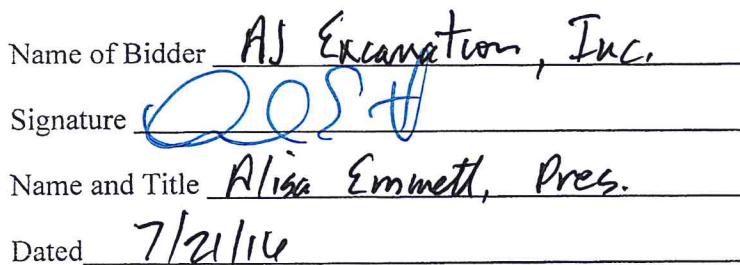 Name of Bidder AJ Excavation, Inc.
Signature
Name and Title Alisa Emmett, Pres.
Dated 7/21/16